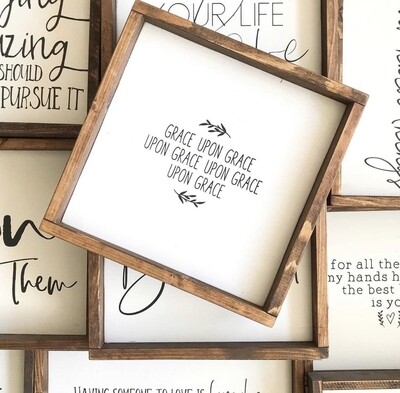 YOUR LIFE
be
SHOULD
PURSUE IT
GRACE UPON GRACE
UPON GRACE UPON GRACE
UPON GRACE
Them
for all the
my hands h
the best
is yo
HAVING SOMEONE TO LOVE IS